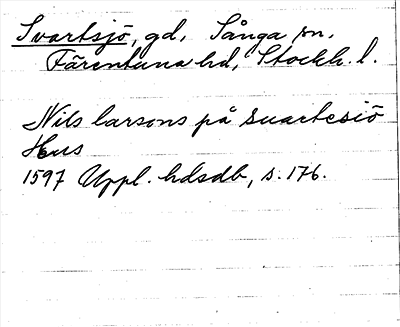 Svartsjö, gd, Sånga sn,
Färentuna hd, Stockh. l.
Nils larsons på Suartesiö
Hus
1597 Uppl. hdsdb, s. 176.